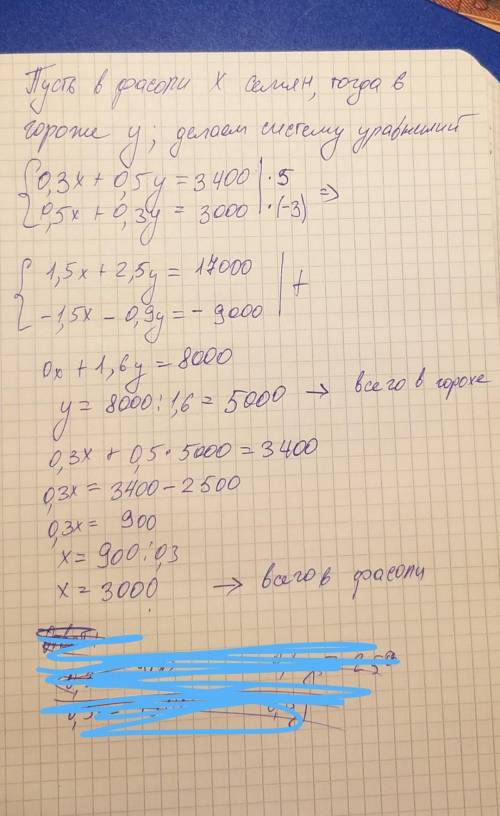 Пусть в фасоли x семян, тогда в
горохе y; делаем систему уравнений
{0,3x + 0,5y = 3400 | · 5
{0,5x + 0,3y = 3000 | · (-3) =>
{1,5x + 2,5y = 17000
{-1,5x - 0,9y = - 9000 | +
0x + 1,6y = 8000
y = 8000 : 1,6 = 5000 → всего в горохе
0,3x + 0,5 · 5000 = 3400
0,3x = 3400 - 2500
0,3x = 900
x = 900 : 0,3
x = 3000 → всего в фасоли